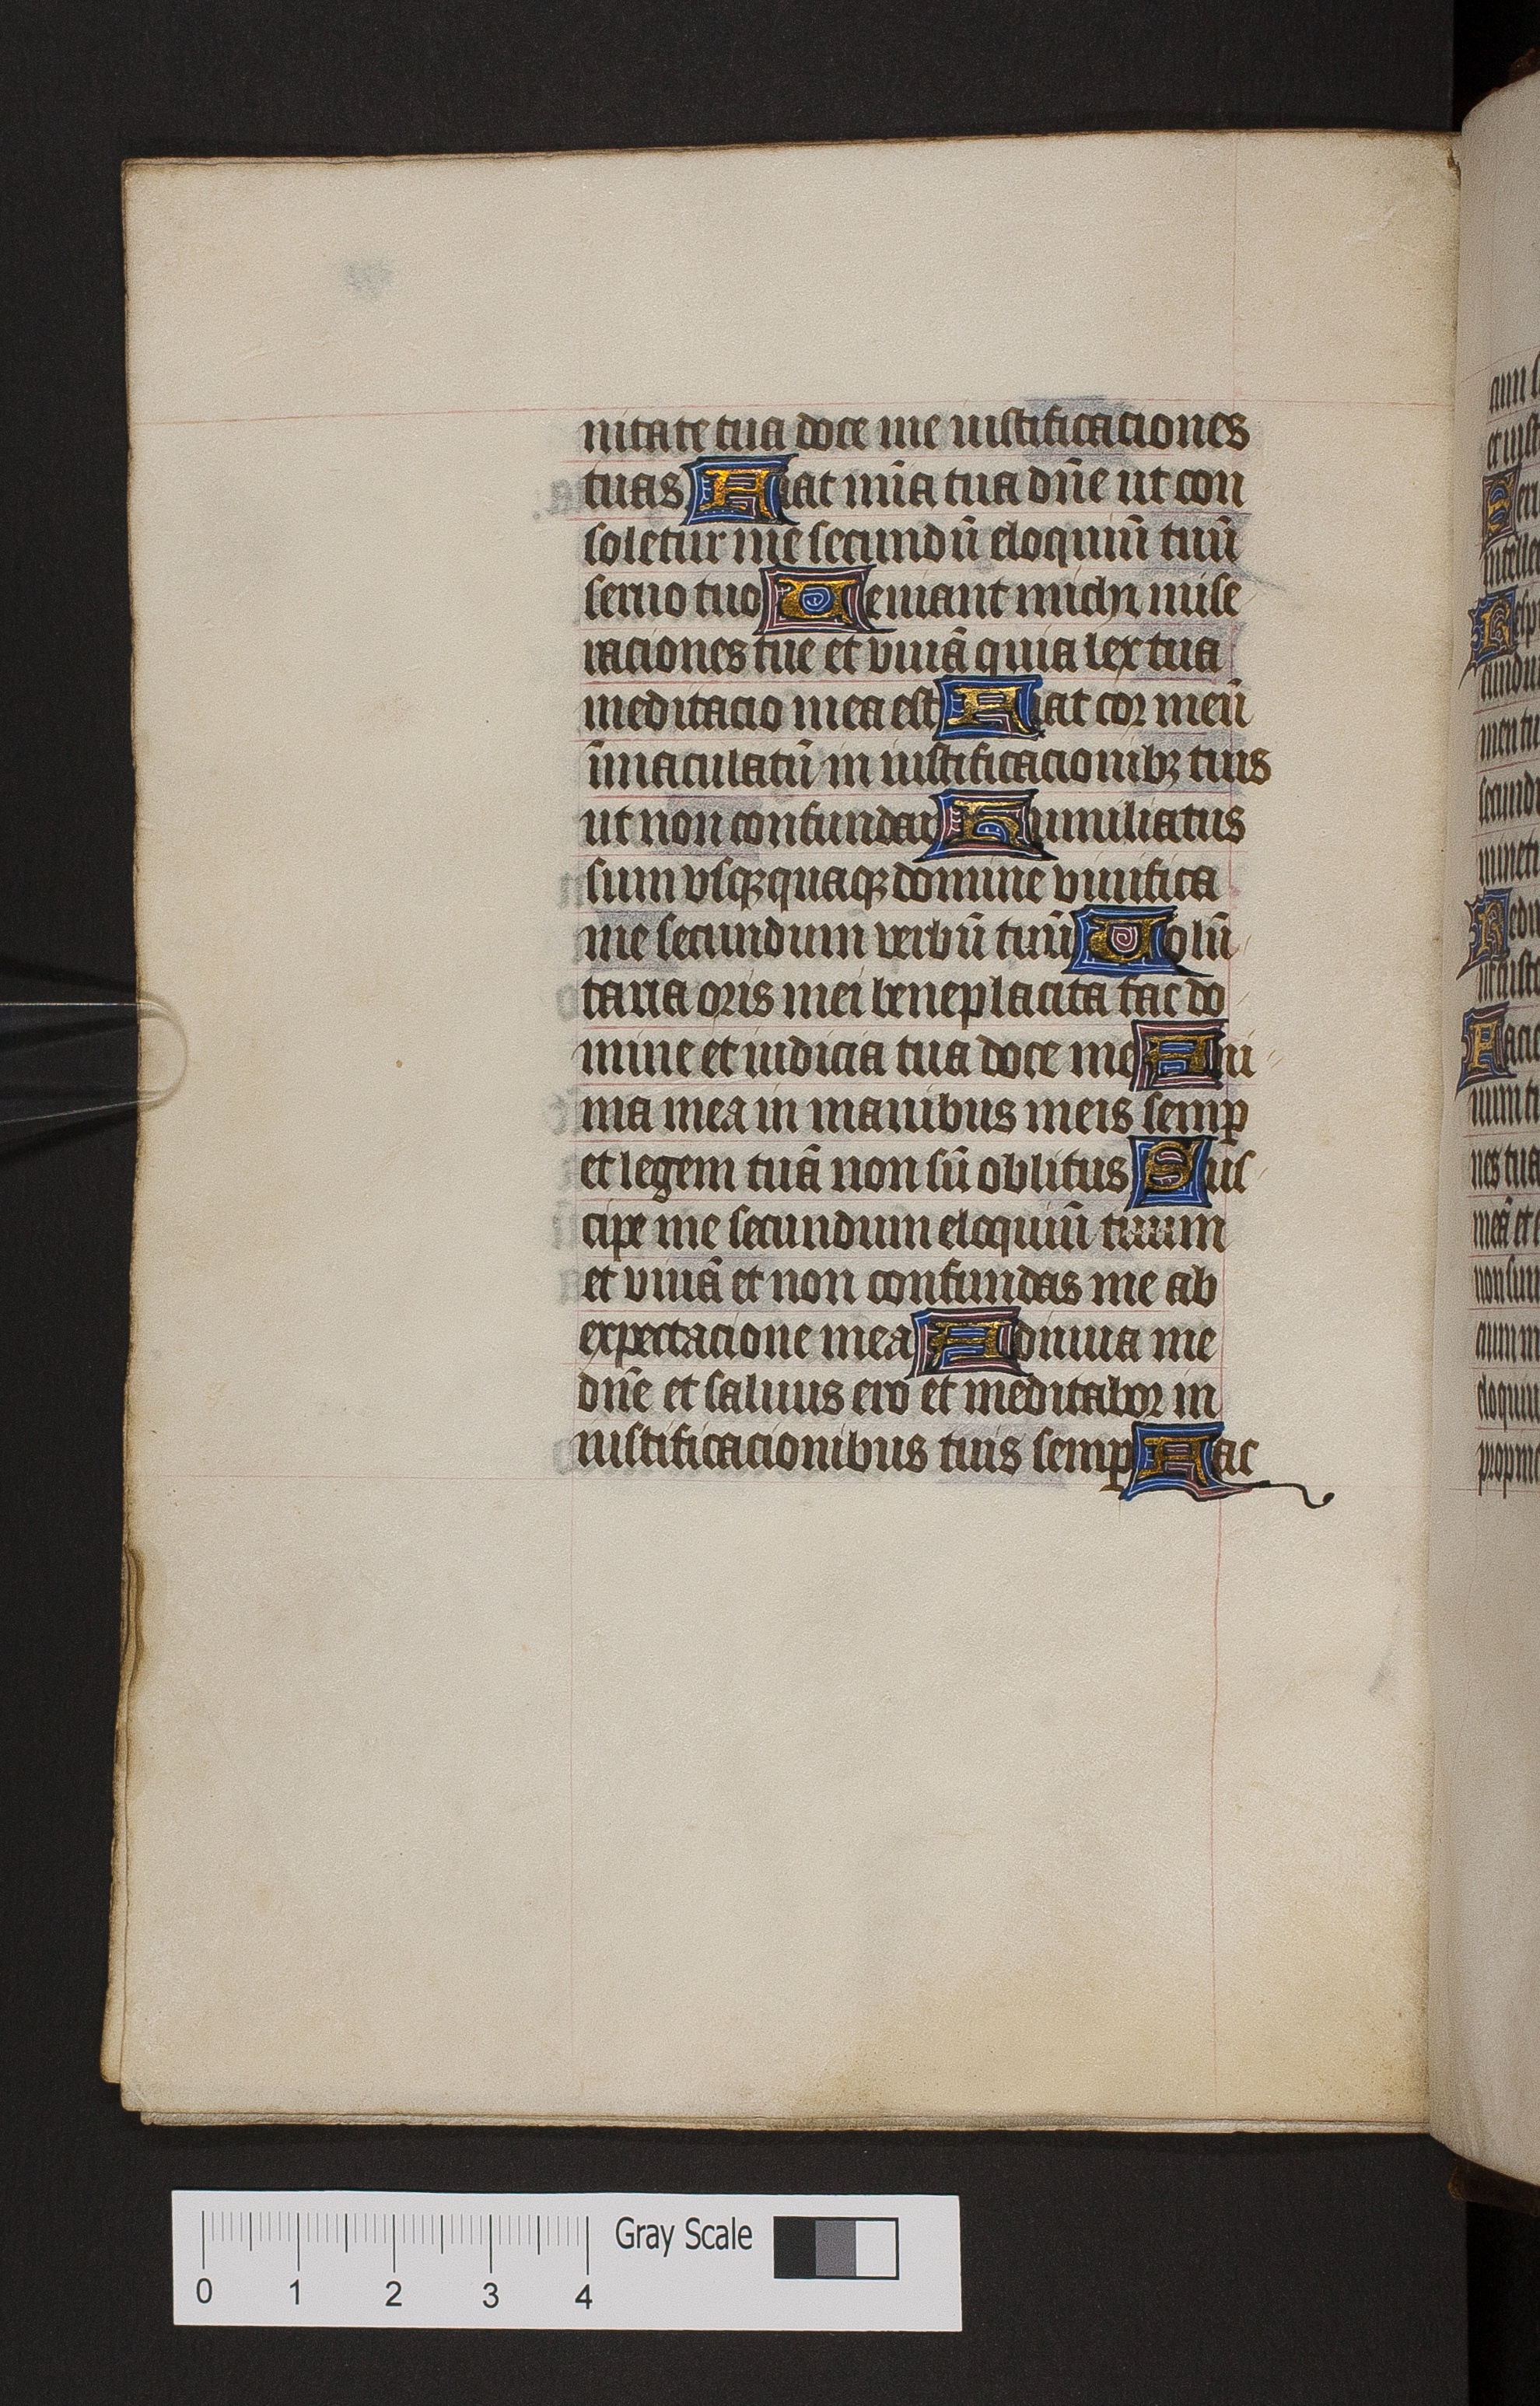 nitate tua doce me iustificaciones
tuas Fiat mīa tua dn̄e ut con
soletur me secundū eloquiū tuū
seruo tuo Ueniant michi mise
raciones tue et viuā quia lex tua
meditacio mea est Fiat cor meū
īmaculatū in iustificacionibꝫ tuis
ut non confundar Humiliatus
sum vsqꝫ quaqꝫ domine viuifica
me secundum verbū tuū Uolū
taria oris mei beneplacita fac do
mine et iudicia tua doce me Ani
ma mea in manibus meis semꝑ
et legem tuā non sū oblitus Sus
cipe me secundum eloquiū tuum
et viuā et non confundas me ab
expectacione mea Adiuua me
dn̄e et saluus ero et meditabor in
iustificacionibus tuis semꝑ Fac
Gray Scale
0 1 2 3 4